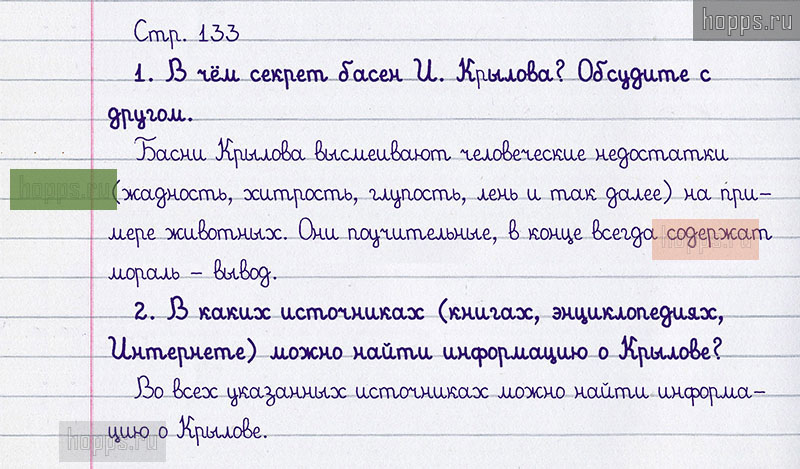 hopps.ru
Стр. 133
1. В чём секрет басен И. Крылова? Обсудите с
другом.
Басни Крылова высмеивают человеческие недостатки
hopps.ru
(жадность, хитрость, глупость, лень и так далее) на при-
мере животных. Они поучительные, в конце всегда содержат
hopps.ru
мораль – вывод.
2. В каких источниках (книгах, энциклопедиях,
Интернете) можно найти информацию о Крылове?
Во всех указанных источниках можно найти информа-
цию о Крылове.
hopps.ru